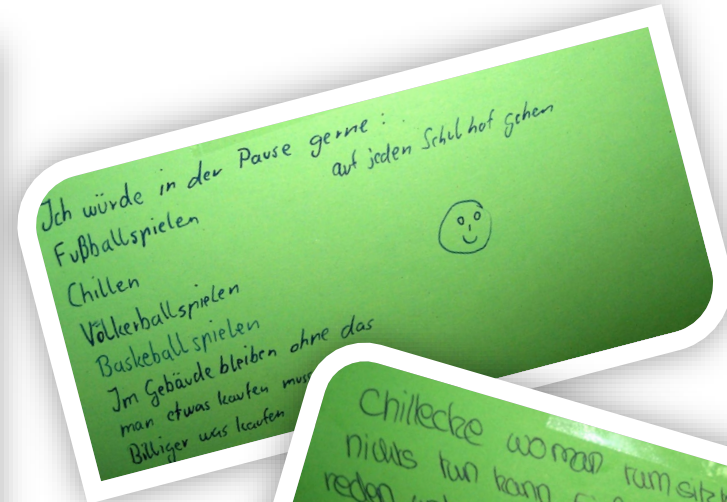 Ich würde in der Pause gerne:
auf jeden Schulhof gehen
Fußballspielen
Chillen
Völkerballspielen
Baskeball spielen
Im Gebäude bleiben ohne das
man etwas kaufen muss
Billiger was kaufen
Chillecke wo man rum sit
nichts tun kann
reden